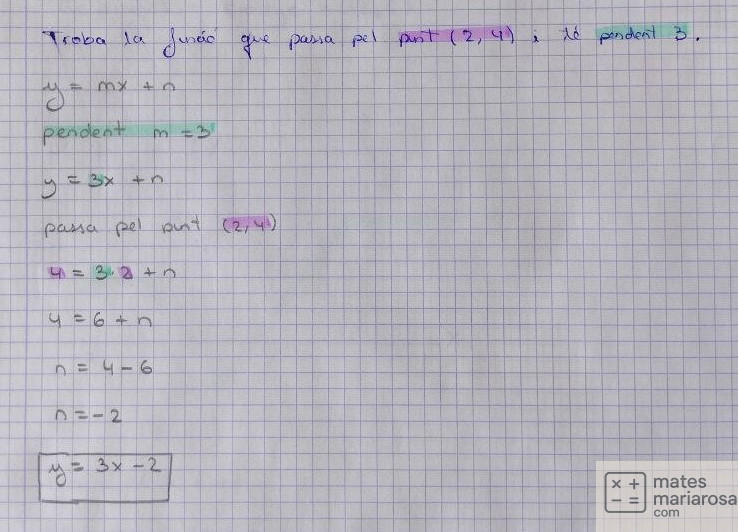 Troba la funció que passa pel punt (2, 4) i té pendent 3.
y = mx + n
pendent m = 3
y = 3x + n
passa pel punt (2,4)
4 = 3·2 + n
4 = 6 + n
n = 4 - 6
n = -2
y = 3x - 2
× + - =
mates
mariarosa
com